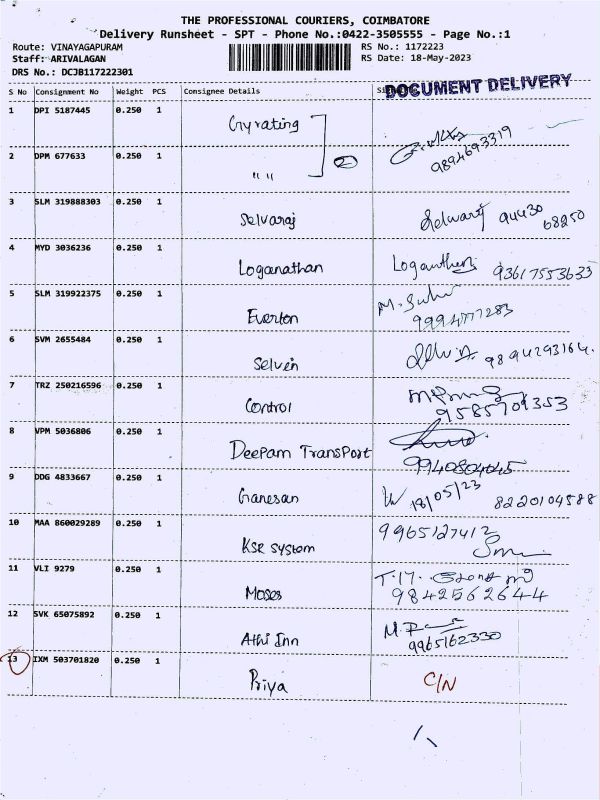 THE PROFESSIONAL COURIERS, COIMBATORE
Delivery Runsheet - SPT - Phone No.:0422-3505555 - Page No.:1
Route: VINAYAGAPURAM RS No.: 1172223
Staff: ARIVALAGAN RS Date: 18-May-2023
DRS No.: DCJB117222301
DOCUMENT DELIVERY
S No Consignment No Weight PCS Consignee Details
1 DPI 5187445 0.250 1 Gyrating
9894693319
2 DPM 677633 0.250 1 " " 2
3 SLM 319888303 0.250 1 Selvaraj Selvaraj 94430 68250
4 MYD 3036236 0.250 1 Loganathan Loganthan 93617553633
5 SLM 319922375 0.250 1 Everton 9994777283
6 SVM 2655484 0.250 1 Selvin 9894293164.
7 TRZ 250216596 0.250 1 Control 9585709353
8 VPM 5036806 0.250 1 Deepam Transport 9940804045
9 DDG 4833667 0.250 1 Ganesan 18/05/23 8220104588
10 MAA 860029289 0.250 1 KSR System 9965127412
11 VLI 9279 0.250 1 Moses 9842562644
12 SVK 65075892 0.250 1 Athi Inn 9965162330
13 IXM 503701820 0.250 1 Priya C/N